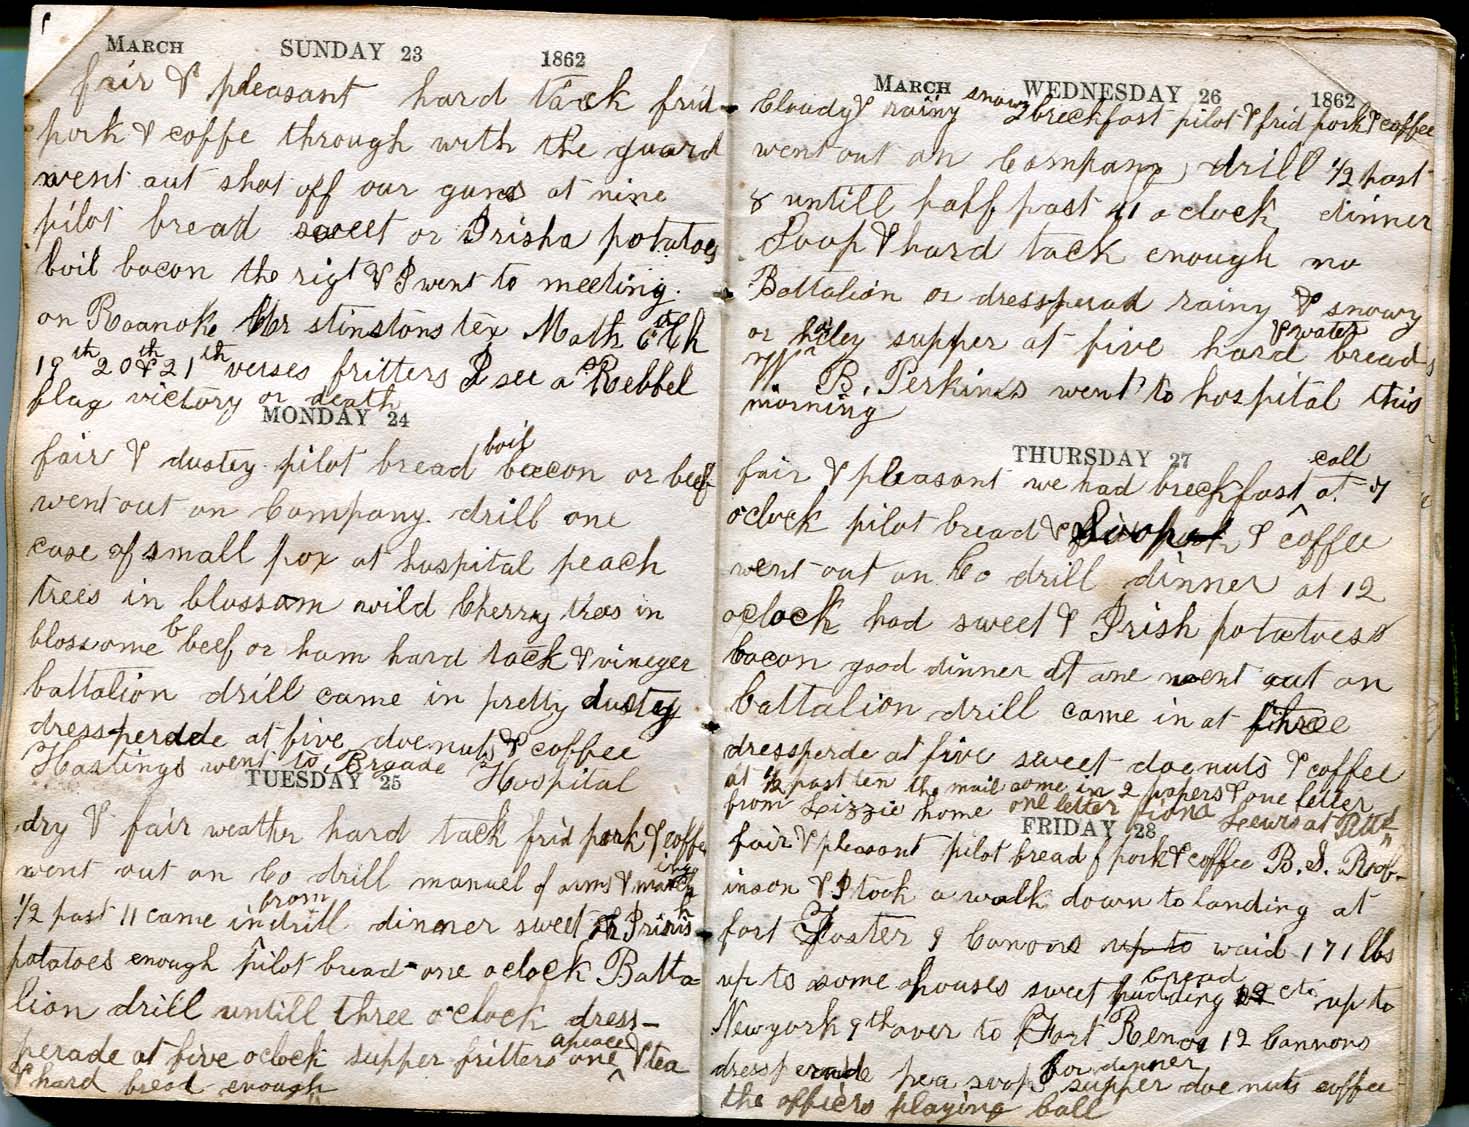 March SUNDAY 23 1862
fair & pleasant hard tack frid
pork & coffe through with the guard
went out shot off our guns at nine
pilot bread sweet or Irisha potatoes
boil bacon the rigt & I went to meeting.
on Roanoke Mr stinstons tex Math 6th Ch
19th 20th & 21th verses fritters I see a Rebbel
flag victory or death
MONDAY 24
fair & dustey pilot bread boil bacon or beef
went out on Company drill one
case of small pox at hospital peach
trees in blossom wild Cherry trees in
blossome beef or ham hard tack & vineger
battalion drill came in pretty dustey
dressperdde at five doenuts & coffee
Hastings went to Brgade Hospital
TUESDAY 25
dry & fair weather hard tack frid pork & coffe
went out on Co drill manuel of arms & marching
1/2 past 11 came in from drill dinner sweet or Irish
potatoes enough pilot bread one oclock Batta-
lion drill untill three oclock dress-
perade at five oclock supper fritters one apeace & tea
& hard bread enough
March WEDNESDAY 26 1862
Cloudy & rainy snowy breckfast pilot & frid pork & coffee
went out on Company drill 1/2 past
8 untill half past 11 oclock dinner
Soop & hard tack enough no
Battalion or dressperad rainy & snowy
or haley supper at five hard breads & water
Wm B. Perkins went to hospital this
morning
THURSDAY 27
fair & pleasant we had breckfast at 7
oclock pilot bread & pork & cold coffee
went out on Co drill dinner at 12
oclock had sweet & Irish potatoes
bacon good dinner at one went out on
battalion drill came in at three
dressperde at five sweet doenuts & coffee
at 1/2 past ten the mail came in 2 papers & one letter
from Lizzie home one letter fiona Lewis at
FRIDAY 28
fair & pleasant pilot bread & pork & coffee B. S. Rob-
inson & I took a walk down to landing at
fort Foster 9 Canons up to waid 171 lbs
up to some houses sweet bread pudding cts up to
New york 9th over to Fort Reno 12 Cannons
dressperaide pea soop for dinner supper doe nuts coffee
the officers playing ball